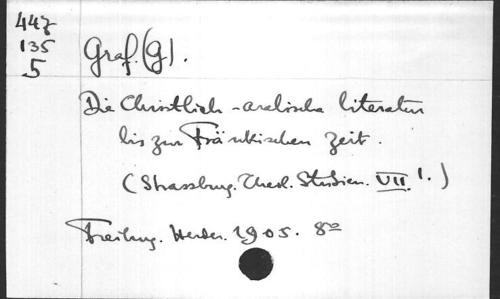 447
135
5
Graf. (G).
Die Christlich-arabische literatur
bis zur Fränkischen Zeit.
(Strassburg. Theol. Studien. VII. 1.)
Freiburg. Herder. 1905. 8º